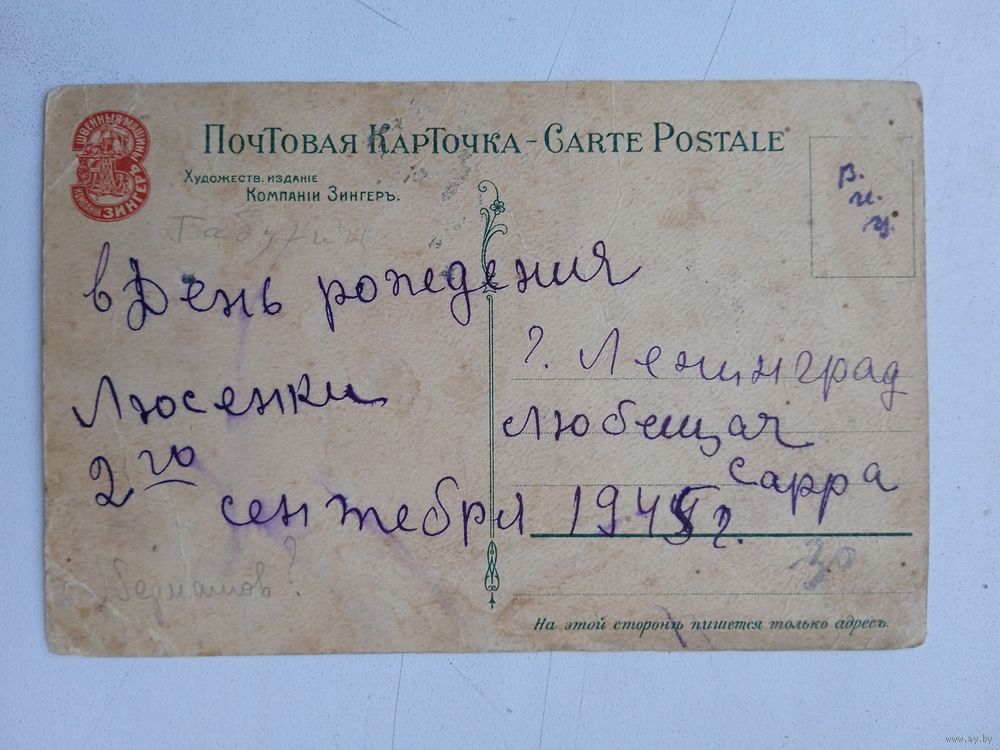 ШВЕЙНЫЯ МАШИНЫ
КОМПАНІИ ЗИНГЕРЪ
ПОЧТОВАЯ КАРТОЧКА - CARTE POSTALE
ХУДОЖЕСТВ. ИЗДАНІЕ
КОМПАНІИ ЗИНГЕРЪ.
В.
в День рождения
Люсенки
2го
сентебря 1945 г.
?. Ленинград
Любещая
Сарра
30
На этой сторонѣ пишется только адресъ.
www.ay.by